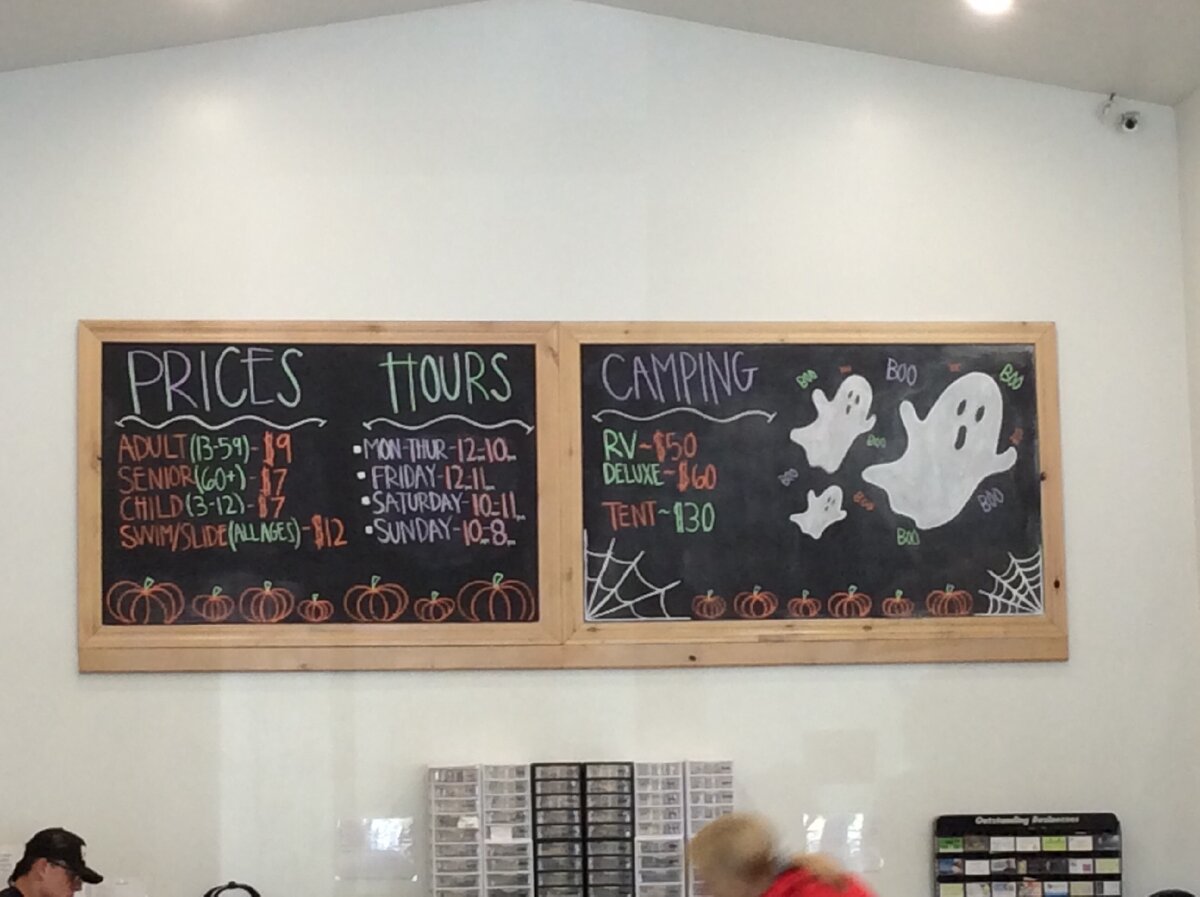 PRICES
ADULT (13-59) - $9
SENIOR (60+) - $7
CHILD (3-12) - $7
SWIM/SLIDE (ALL AGES) - $12
HOURS
MON-THUR-12-10
FRIDAY-12-11
SATURDAY-10-11
SUNDAY-10-8
CAMPING
RV~$50
DELUXE~$60
TENT~$30
BOO
BOO
BOO
BOO
BOO
BOO
BOO
BOO
Outstanding Businesses